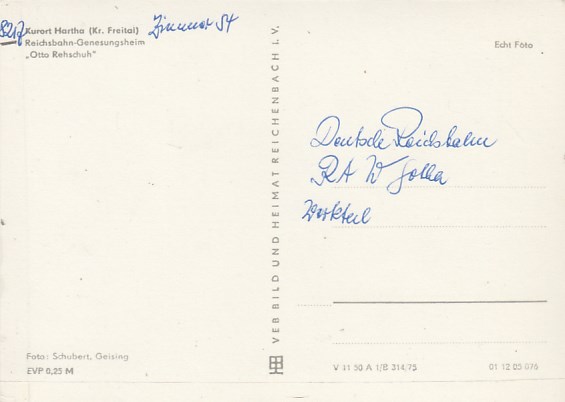 8217 Kurort Hartha (Kr. Freital) Zimmer 54
Reichsbahn-Genesungsheim
„Otto Rehschuh"
Echt Foto
Deutsche Reichsbahn
RAW Gotha
Werkteil
VEB BILD UND HEIMAT REICHENBACH I.V.
Foto: Schubert, Geising
EVP 0,25 M
V 11 50 A 1/B 314/75 01 12 05 076